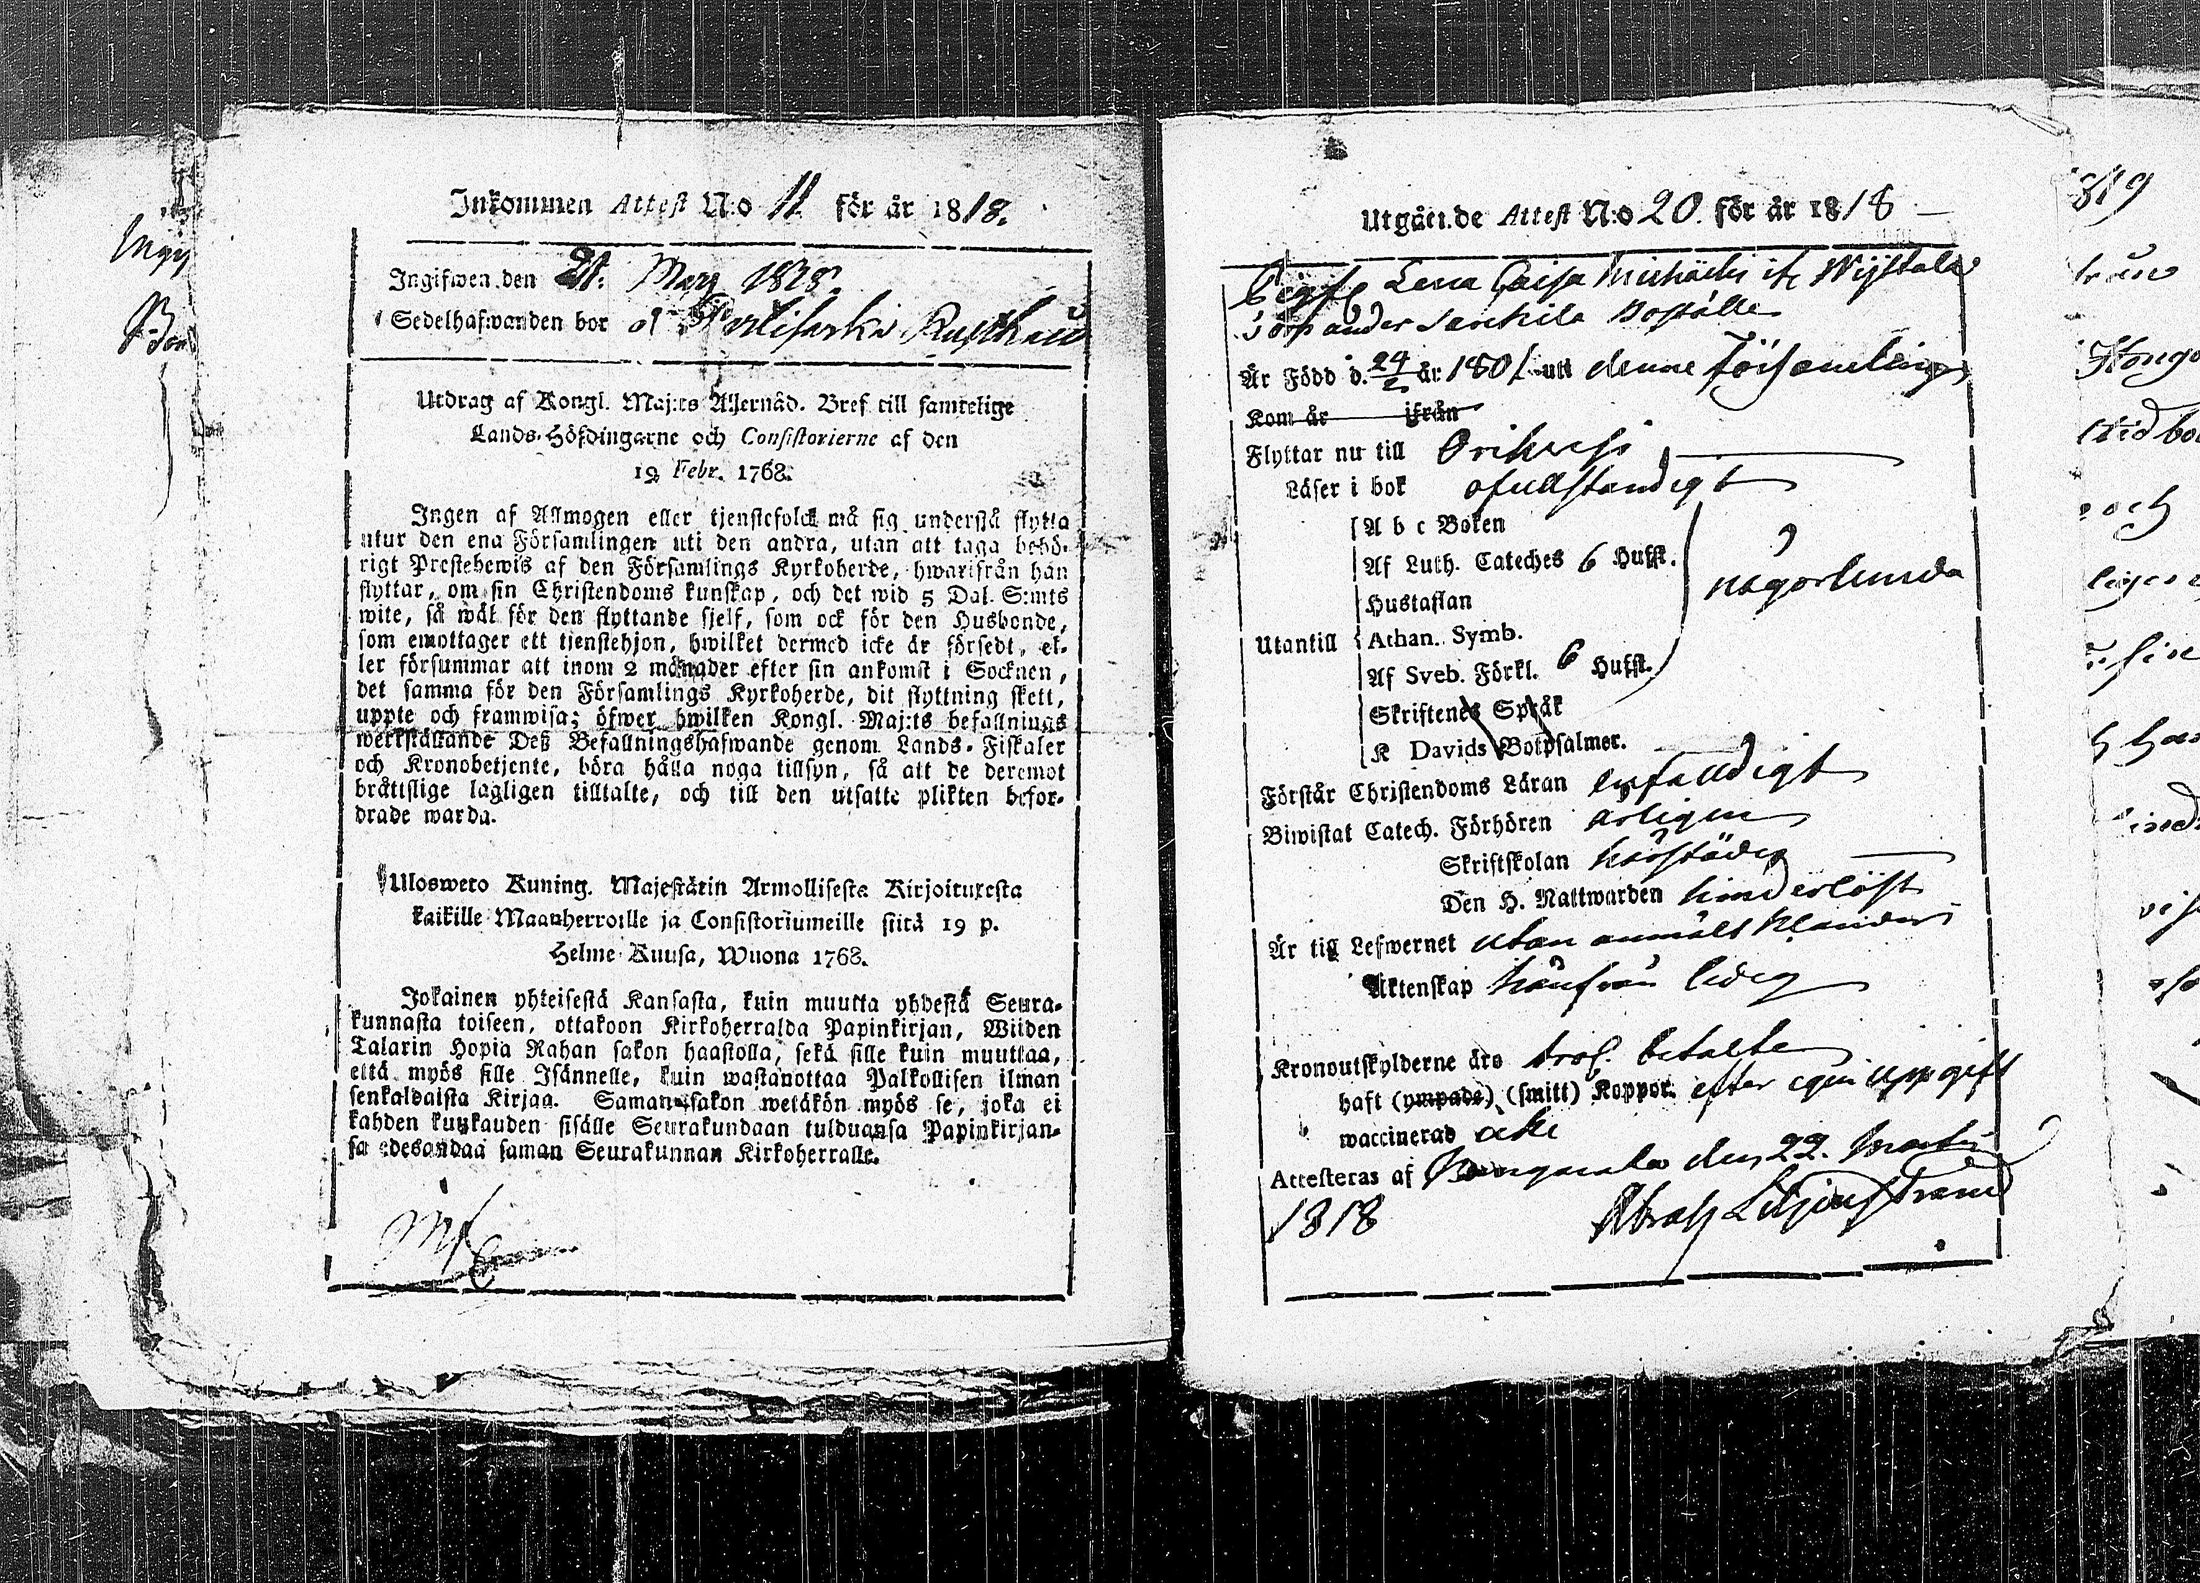 Inkommen Attest N:o 11 för år 1818.
Ingifwen den 21. Mars 1818.
Sedelhafwanden bor Rusthåll
Utdrag af Kongl. Maj:ts Allernåd. Bref till samtelige
Lands-Höfdingarne och Consistorierne af den
19 Febr. 1768.
Ingen af Allmogen eller tjenstefolck må sig understå flytta
utur den ena Församlingen uti den andra, utan att taga behö-
rigt Prestebewis af den Församlings Kyrkoherde, hwarifrån han
flyttar, om sin Christendoms kunskap, och det wid 5 Dal. S:mts
wite, så wäl för den flyttande sjelf, som ock för den Husbonde,
som emottager ett tjenstehjon, hwilket dermed icke är försedt, el-
ler försummar att inom 2 månader efter sin ankomst i Socknen,
det samma för den Församlings Kyrkoherde, dit flyttning skett,
uppte och framwisa; öfwer hwilken Kongl. Maj:ts befallnings
werkställande Deß Befallningshafwande genom Lands-Fiskaler
och Kronobetjente, böra hålla noga tillsyn, så att de deremot
bråttslige lagligen tilltalte, och till den utsatte plikten befor-
drade warda.
Uloswero Kuning. Majestätin Armollisesta Kirjoituxesta
kaikille Maanherroille ja Consistoriumeille siitä 19 p.
Helme-Kuusa, Wuona 1768.
Jokainen yhteisestä Kansasta, kuin muutta yhdestä Seura-
kunnasta toiseen, ottakoon Kirkoherralda Papinkirjan, Wiiden
Talarin Hopia Rahan sakon haastolla, sekä sille kuin muuttaa,
että myös sille Isännelle, kuin wastanottaa Palkollisen ilman
senkaldaista Kirjaa. Saman sakon wetäkön myös se, joka ei
kahden kuukauden sisälle Seurakundaan tulduansa Papinkirjan-
sa edesandaa saman Seurakunnan Kirkoherralle.
Utgående Attest N:o 20. för år 1818
Pigan Lena Caisa Michaëls dr Wijstala
torp under Boställe
Är Född d. 24/2 år 1801 uti denne Församling
Kom år ifrån
Flyttar nu till Orihvesi
Läser i bok ofullständigt
A b c Boken
Af Luth. Cateches 6 Hufst.
Hustaflan
någorlunda
Utantill
Athan. Symb.
Af Sveb. Förkl. 6 Hufst.
Skriftenes Språk
K Davids Botpsalmer.
Förstår Christendoms Läran enfalldigt
Biwistat Catech. Förhören årligen
Skriftskolan härstädes
Den H. Nattwarden hinderlöst
Är till Lefwernet utan anmält klander
Äktenskap härifrån ledig
Kronoutskylderne äro betalte
haft (ympade) (smitt) Koppor. efter egen uppgift
waccinerad icke
Attesteras af Kangasala den 22. Martii
1818 Abrah Liljenstrand